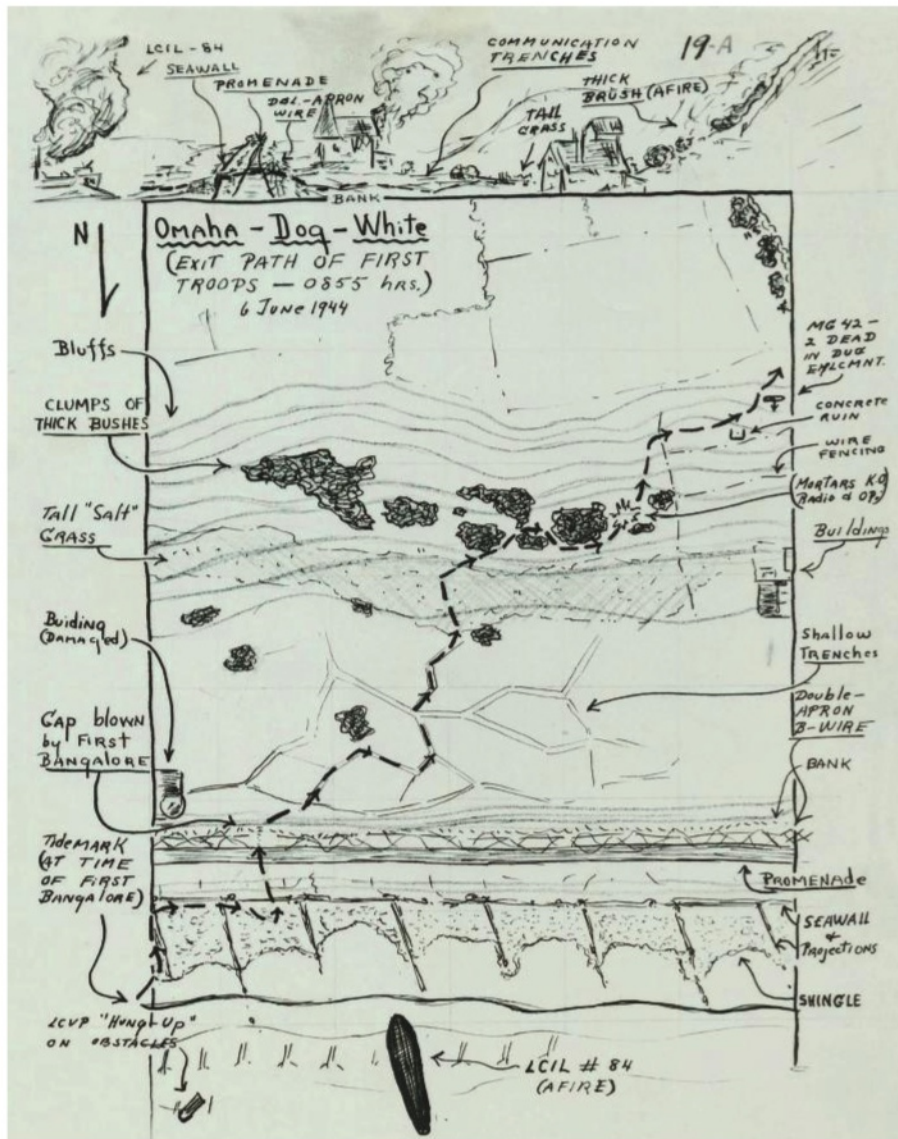 LCIL-84
SEAWALL
PROMENADE
DBL-APRON
WIRE
COMMUNICATION
TRENCHES
19-A
THICK
BRUSH (AFIRE)
TALL
GRASS
BANK
N
Omaha - Dog - White
(EXIT PATH OF FIRST
TROOPS — 0855 hrs.)
6 JUNE 1944
Bluffs
CLUMPS OF
THICK BUSHES
Tall "Salt"
GRASS
Buiding
(DAMAGED)
GAP blown
by FIRST
BANGALORE
TIDEMARK
(AT TIME
OF FIRST
BANGALORE)
LCVP "HUNG-UP"
ON OBSTACLES
MG 42 -
2 DEAD
IN DUG
EMLCMNT.
CONCRETE
RUIN
WIRE
FENCING
(MORTARS K.O.
RADIO & OPs)
Buildings
Shallow
TRENCHES
Double-
APRON
B-WIRE
BANK
PROMENADE
SEAWALL
&
PROJECTIONS
SHINGLE
LCIL # 84
(AFIRE)